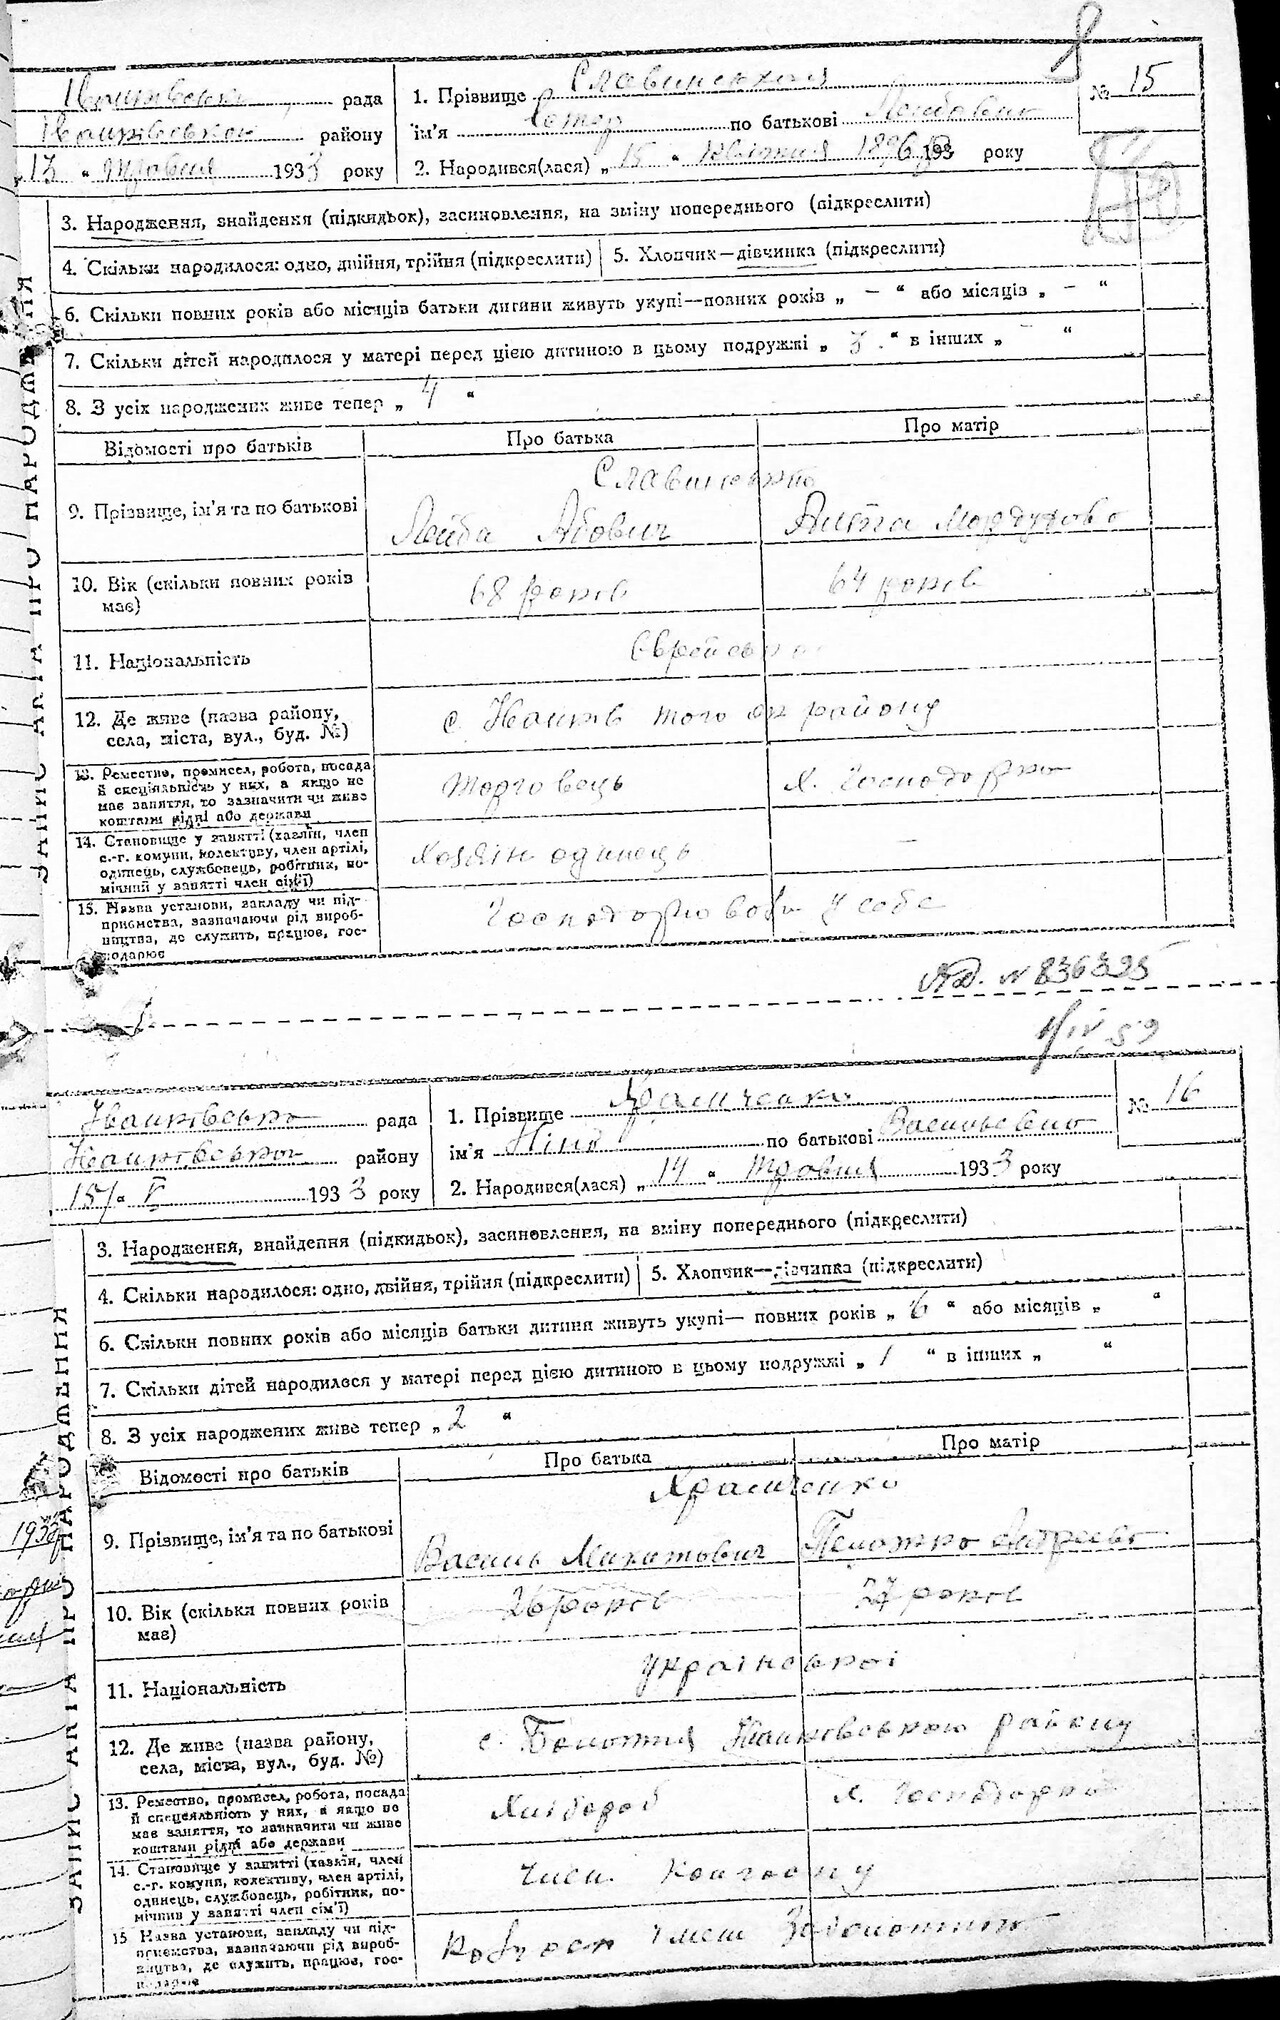 Іванківська рада
Іванківського району
„13 “ Травня 1933 року
1. Прізвище Славинська
ім'я Естер по батькові Лейбовна
2. Народився(лася) „ 15 “ 1896 193 року
№ 15
ЗАПИС АКТА ПРО НАРОДЖЕННЯ
3. Народження, знайдення (підкидьок), засиновлення, на зміну попереднього (підкреслити)
4. Скільки народилося: одно, двійня, трійня (підкреслити) 5. Хлопчик—дівчинка (підкреслити)
6. Скільки повних років або місяців батьки дитини живуть укупі—повних років „ – “ або місяців „ – “
7. Скільки дітей народилося у матері перед цією дитиною в цьому подружжі „ 3 “ в інших „ – “
8. З усіх народжених живе тепер „ 4 “
Відомості про батьків Про батька Про матір
9. Прізвище, ім'я та по батькові
Лейба Абович
10. Вік (скільки повних років має) 68 років 64 років
11. Національність Єврейська
12. Де живе (назва району, села, міста, вул., буд. №) с. Іванків того ж району
13. Ремество, промисел, робота, посада
й спеціяльність у них, а якщо не
має заняття, то зазначити чи живе
коштами рідні або держави
Торговець
14. Становище у занятті (хазяїн, член
с.-г. комуни, колективу, член артілі,
одинець, службовець, робітник, по-
мічний у занятті член сім'ї)
Хозяїн одинець –
15. Назва установи, закладу чи під-
приємства, зазначаючи рід вироб-
ництва, де служить, працює, гос-
подарює
у себе
№ 836325
IV 59
Іванківська рада
Іванківського району
15/ V 1933 року
1. Прізвище Храмченко
ім'я Ніна по батькові Васильевна
2. Народився(лася) „ 14 “ травня 1933 року
№ 16
ЗАПИС АКТА ПРО НАРОДЖЕННЯ
3. Народження, знайдення (підкидьок), засиновлення, на зміну попереднього (підкреслити)
4. Скільки народилося: одно, двійня, трійня (підкреслити) 5. Хлопчик—дівчинка (підкреслити)
6. Скільки повних років або місяців батьки дитини живуть укупі— повних років „ 6 “ або місяців „ “
7. Скільки дітей народилося у матері перед цією дитиною в цьому подружжі „ 1 “ в інших „ “
8. З усіх народжених живе тепер „ 2 “
Відомості про батьків Про батька Про матір
Храмченко
9. Прізвище, ім'я та по батькові
Василь Микитович
10. Вік (скільки повних років має) 26 років 27 років
11. Національність української
12. Де живе (назва району, села, міста, вул., буд. №) с. Болотня Іванківського району
13. Ремество, промисел, робота, посада
й спеціяльність у них, а якщо не
має заняття, то зазначити чи живе
коштами рідні або держави
Хлібороб
14. Становище у занятті (хазяїн, член
с.-г. комуни, колективу, член артілі,
одинець, службовець, робітник, по-
мічник у занятті член сім'ї)
член колгоспу
15 Назва установи, закладу чи під-
приємства, зазначаючи рід вироб-
ництва, де служить, працює, гос-
подарює
Колгосп